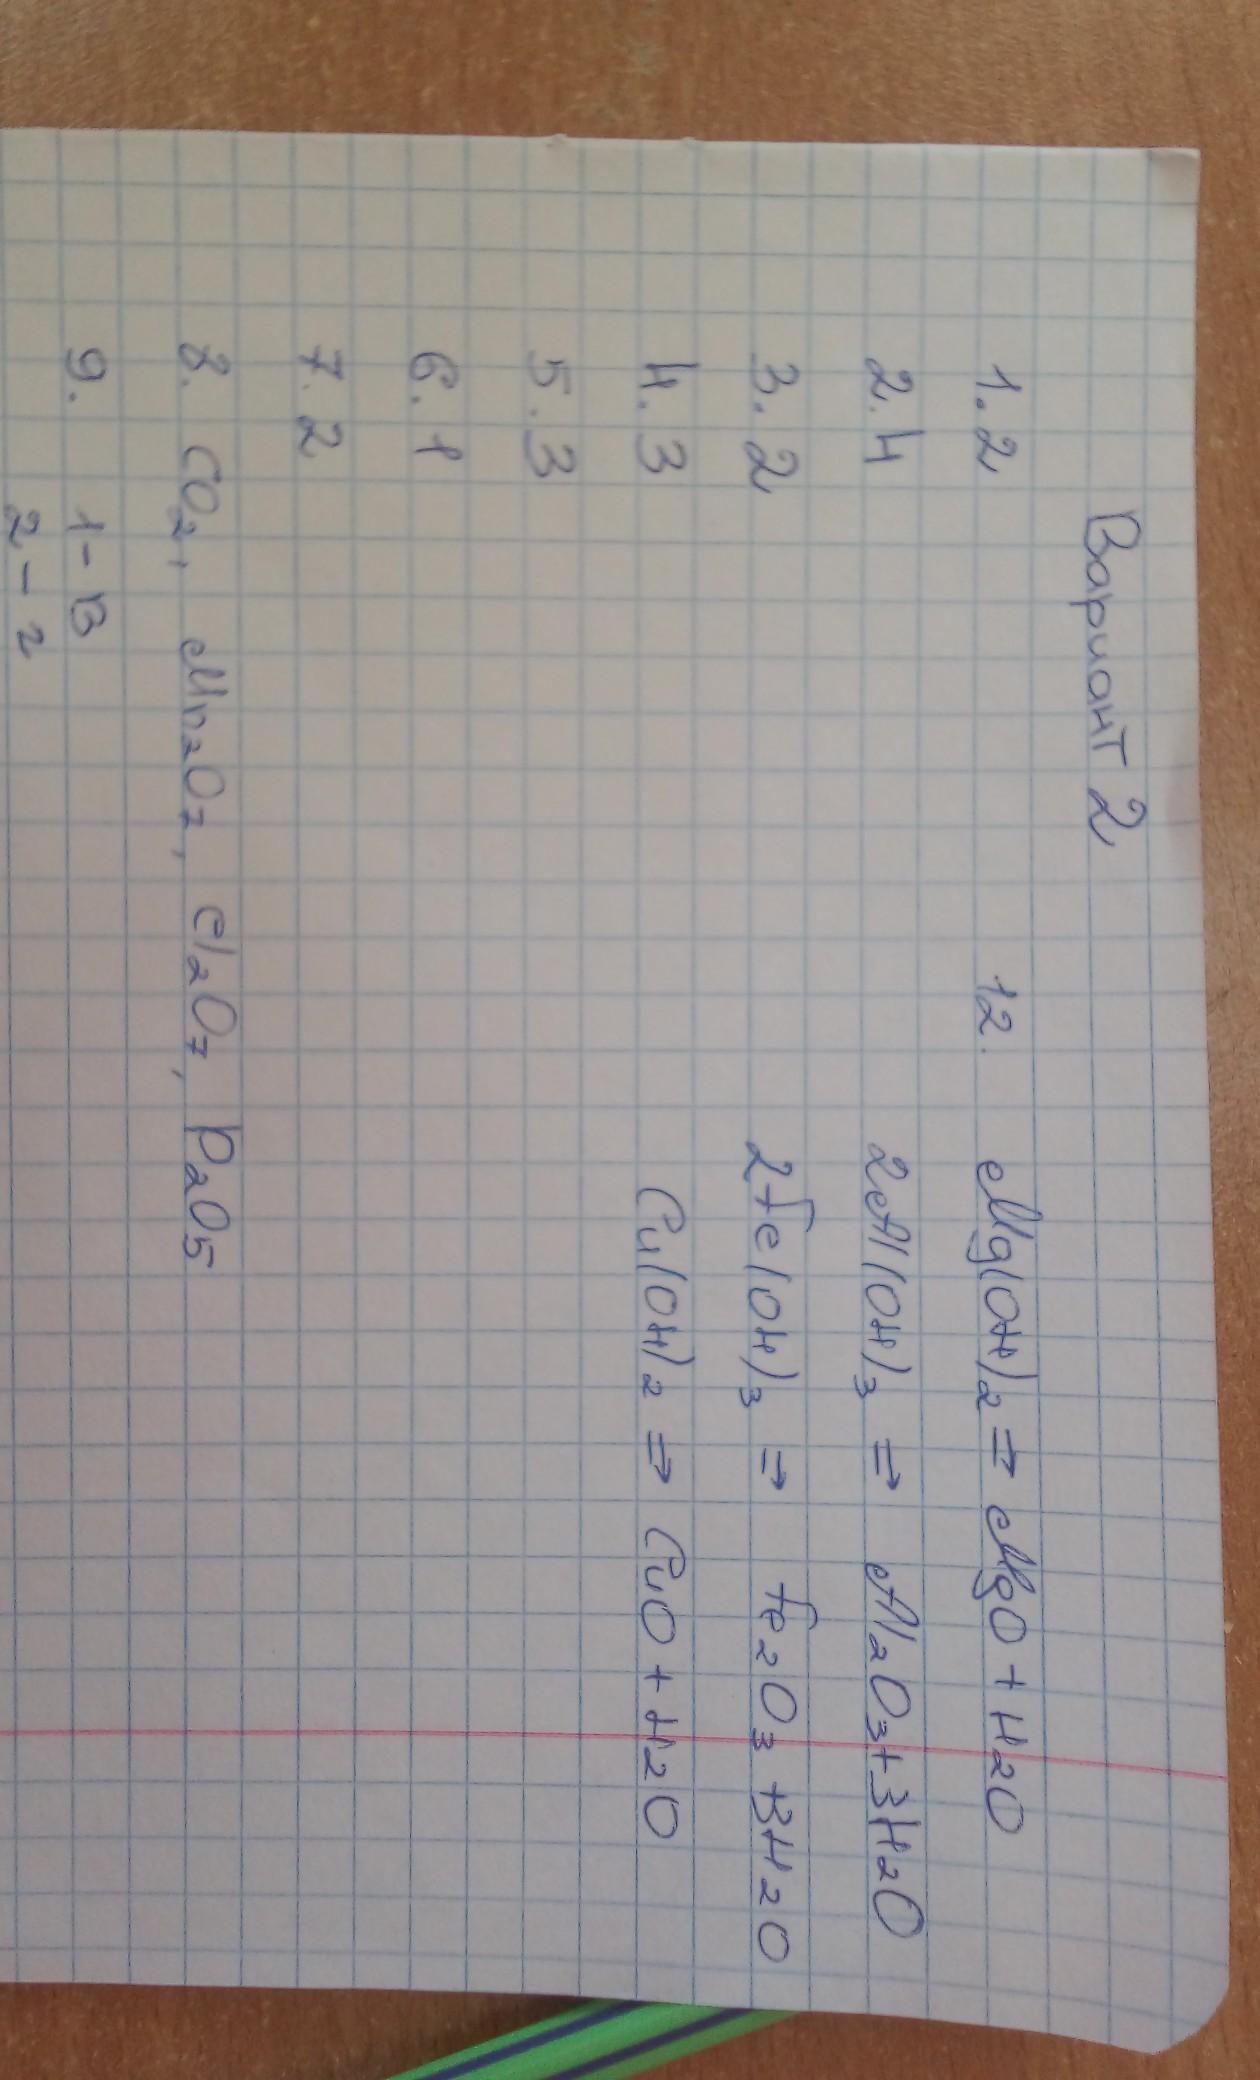 Вариант 2
1. 2
2. 4
3. 2
4. 3
5. 3
6. 1
7. 2
8. CO2, Mn2O7, Cl2O7, P2O5
9. 1 - В
2 - г
12. Mg(OH)2 => MgO + H2O
2Al(OH)3 => Al2O3 + 3H2O
2Fe(OH)3 => Fe2O3 + 3H2O
Cu(OH)2 => CuO + H2O